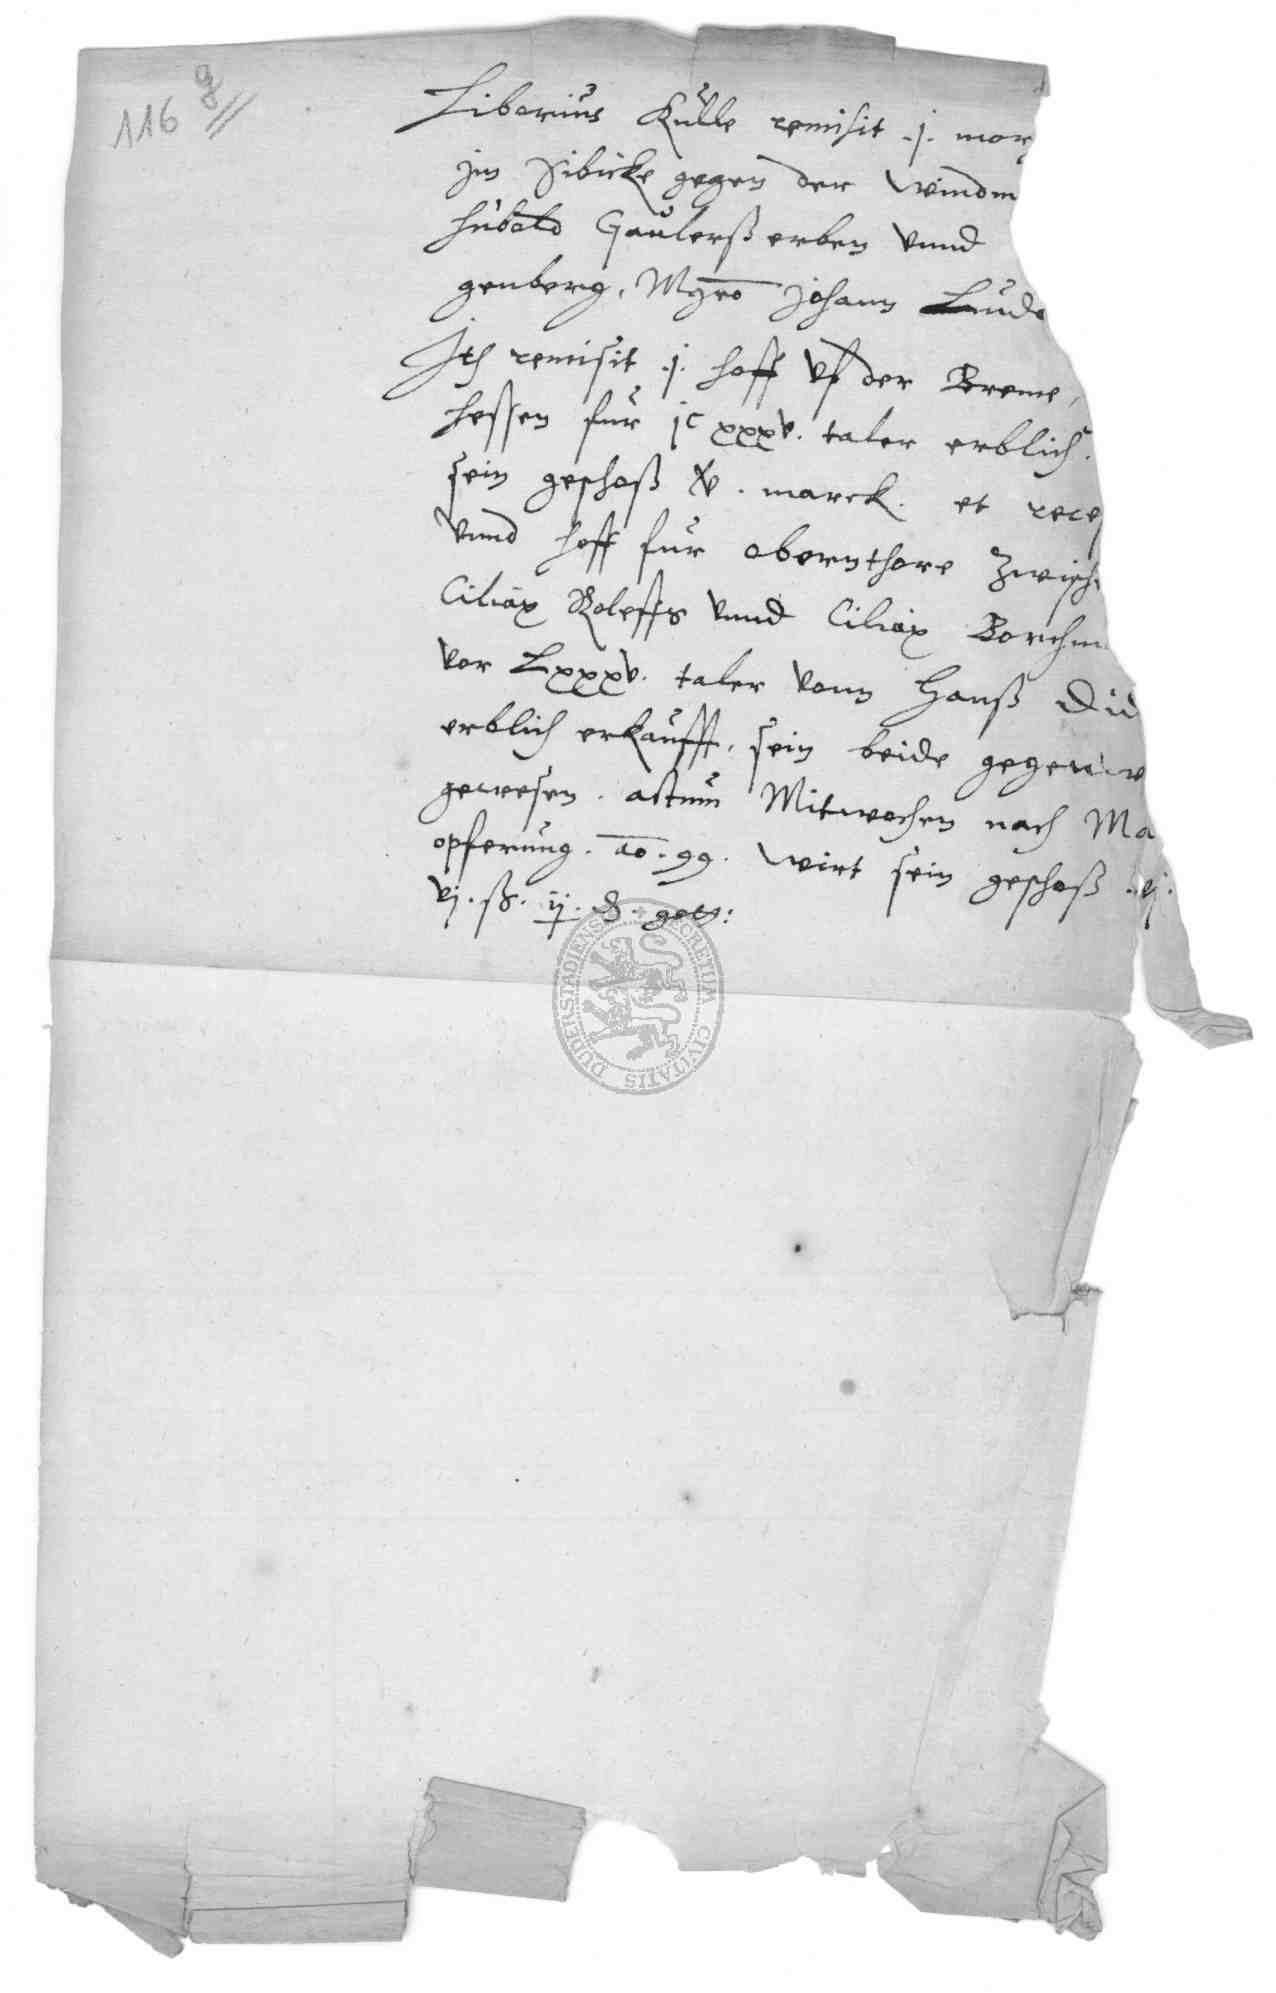 116 g
Liborius Kulle remisit .j. mor
jm Sibicke gegen der windm
hübald Gaulerß erben vnnd
genberg, Johann Lude
Jth remisit .j. hoff vf der Breme,
hessen fur jc xxxv. taler erblich.
sein geschoß v. marck. et rece
vnnd hoff fur obernthore zwisch
Ciliax Roleffs vnnd Ciliax Borchm
vor Lxxxv. taler vonn Hanß Did
erblich erkaufft, sein beide gegenw
gewesen. actum Mitwochen nach Ma
opferung. ao. 99. wirt sein geschoß
vj. ß. ij. ₰. gotg:
SECRETUM CIVITATIS DUDERSTADIENS